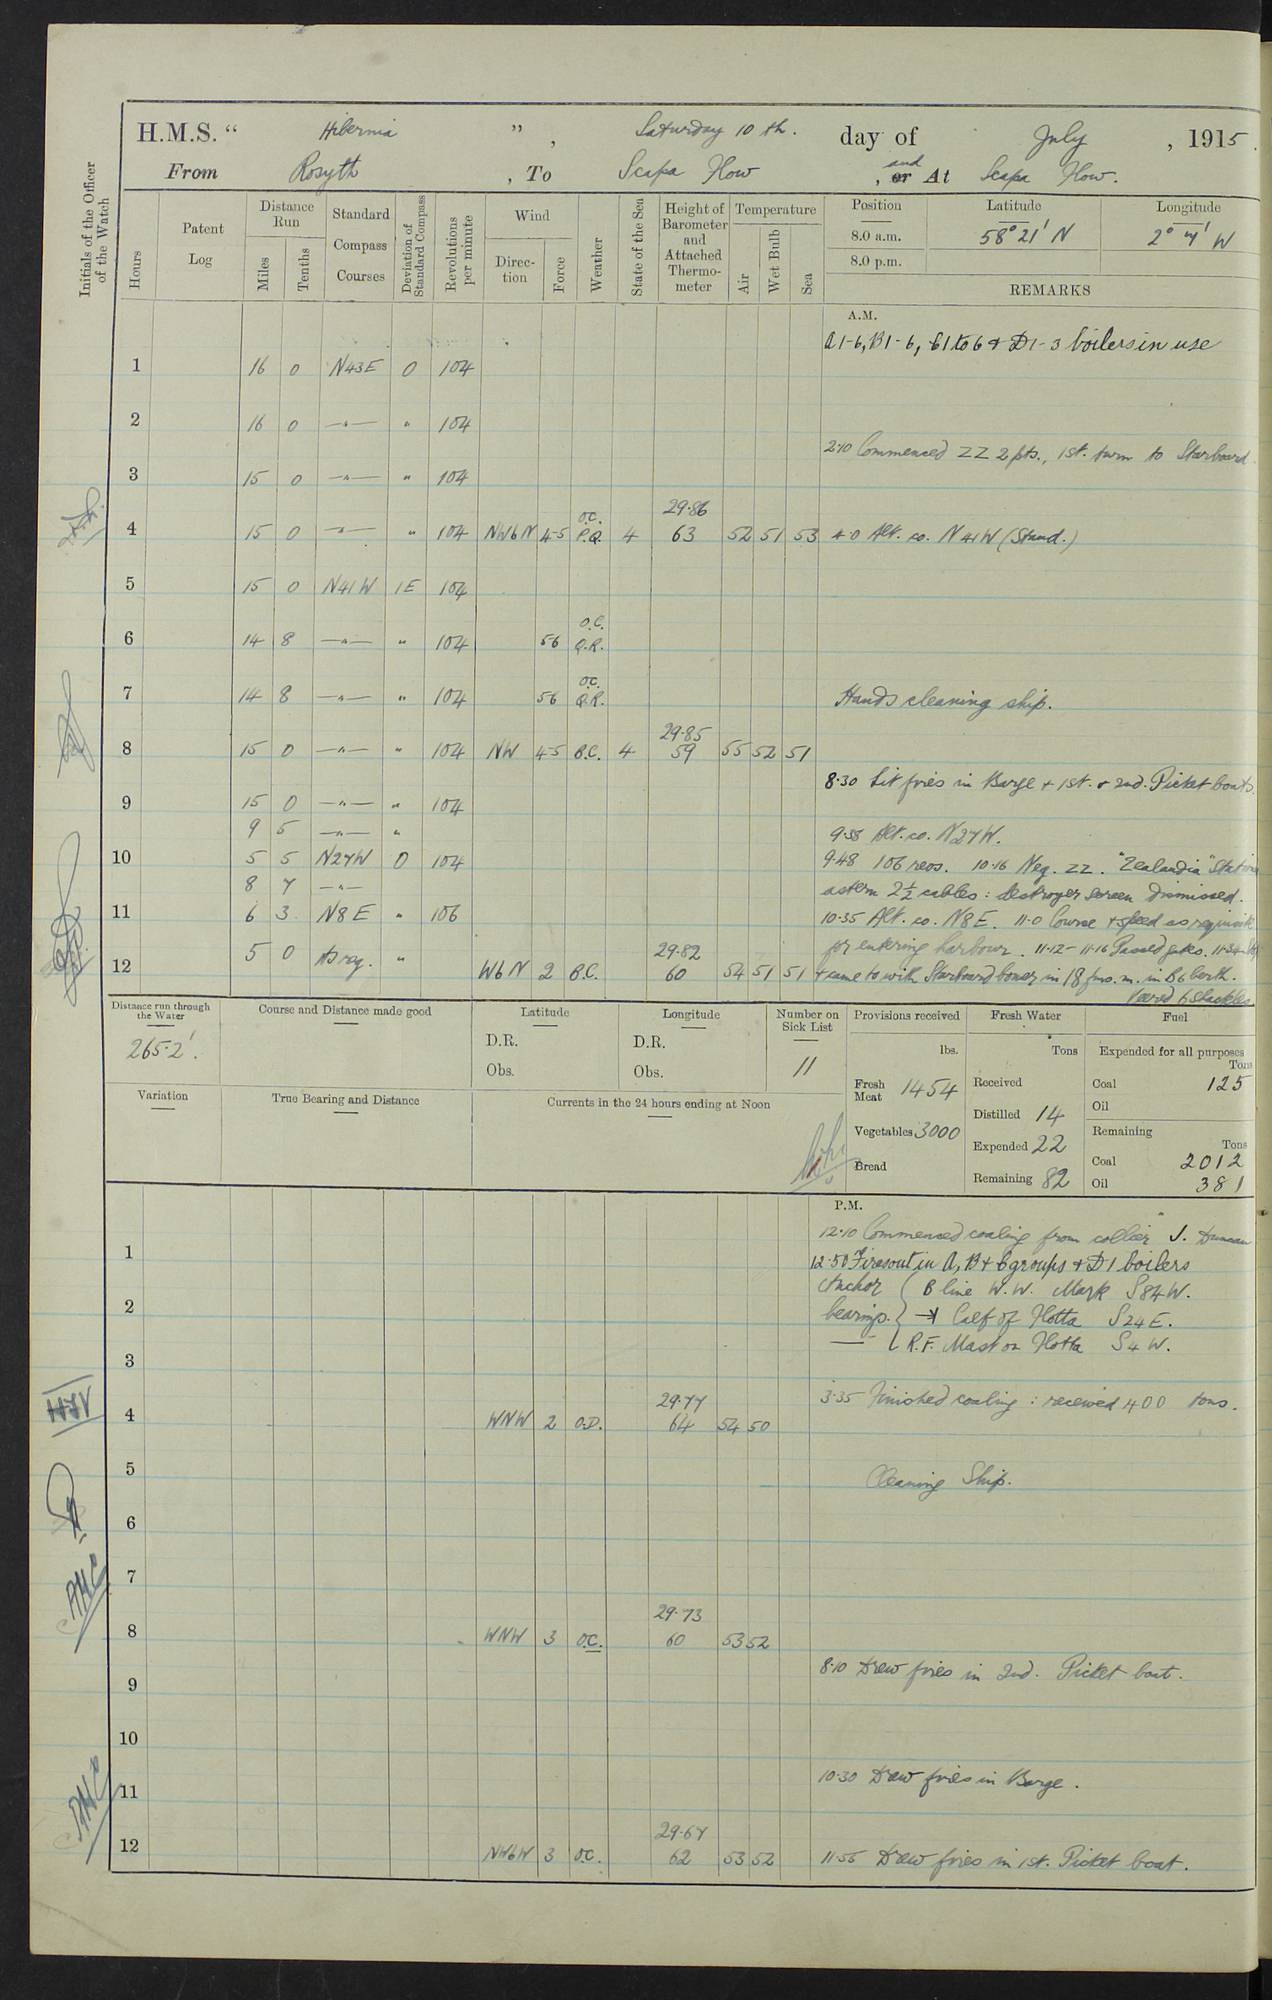 H.M.S. " Hibernia ", Saturday 10th. day of July, 1915.
From Rosyth, To Scapa Flow, and or At Scapa Flow.
Initials of the Officer of the Watch
Hours
Patent Log
Distance Run
Miles
Tenths
Standard Compass Courses
Deviation of Standard Compass
Revolutions per minute
Wind
Direction
Force
Weather
State of the Sea
Height of Barometer and Attached Thermometer
Temperature
Air
Wet Bulb
Sea
Position Latitude Longitude
8.0 a.m. 58° 21' N 2° 7' W
8.0 p.m.
REMARKS
A.M.
A1-6, B1-6, C1 to 6 & D1-3 boilers in use
1 16 0 N43E 0 104
2 16 0 —"— " 104
2.10 Commenced ZZ 2 pts., 1st. turn to Starboard
3 15 0 —"— " 104
29.86
O.C.
4 15 0 —"— " 104 NWbN 4-5 P.Q. 4 63 52 51 53 4.0 Alt. co. N41W (Stand.)
5 15 0 N41W 1E 104
O.C.
6 14 8 —"— " 104 56 Q.R.
O.C.
7 14 8 —"— " 104 56 Q.R. Hands cleaning ship.
29.85
8 15 0 —"— " 104 NW 4-5 B.C. 4 59 55 52 51
8.30 Lit fires in Barge + 1st. & 2nd. Picket boats.
9 15 0 —"— " 104
9 5 —"— " Alt. co. N27W.
10 5 5 N27W 0 104 9.48 106 revs. 10.16 Neg. ZZ. "Zealandia" Station
8 7 —"— astern 2½ cables: Destroyer screen dismissed.
11 6 3 N8E " 106 10.35 Alt. co. N8E. 11.0 Course & speed as requisite
5 0 As req. " 29.82 for entering harbour. 11.12-11.16 Passed gates. 11.34
12 WbN 2 B.C. 60 54 51 51 & came to with Starboard bower in 18 fms. m. in B6 berth.
Veered 6 shackles
Distance run through the Water
265.2'.
Course and Distance made good
Latitude
D.R.
Obs.
Longitude
D.R.
Obs.
Number on Sick List
11
Provisions received
lbs.
Fresh Meat 1454
Vegetables 3000
Bread
Fresh Water
Tons
Received
Distilled 14
Expended 22
Remaining 82
Fuel
Expended for all purposes
Tons
Coal 125
Oil
Remaining
Tons
Coal 2012
Oil 381
Variation
True Bearing and Distance
Currents in the 24 hours ending at Noon
P.M.
12.10 Commenced coaling from collier "J. Duncan
1 12.50 Fires out in A, B & C groups & D1 boilers
Anchor { B line W.W. Mark S84W.
2 bearings. Calf of Flotta S24E.
R.F. Mast on Flotta S4W.
3
29.77 3.35 Finished coaling: received 400 tons.
4 WNW 2 O.D. 64 54 50
5 Cleaning Ship.
6
7
29.73
8 WNW 3 O.C. 60 53 52
8.10 Drew fires in 2nd. Picket boat.
9
10
10.30 Drew fires in Barge.
11
29.67
12 NWbW 3 O.C. 62 53 52 11.55 Drew fires in 1st. Picket boat.